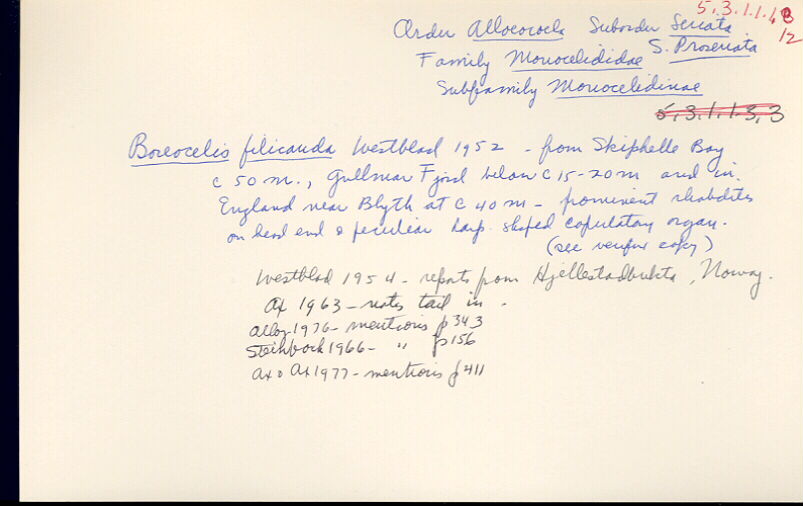 5.3.1.1.4.8
12
Order Allocococla Suborder Seriata
S. Proseriata
Family Monocelididae
Subfamily Monocelidinae
5.3.1.1.3.3
Boreocelis filicauda Westblad 1952 - from Skiphelle Bay
c 50 m., Gullmar Fjord below c 15-20 m and in
England near Blyth at c 40 m - prominent rhabdites
on head end & peculiar harp shaped copulatory organ.
(see verifax copy)
Westblad 1954 - reports from Hjellestadbukta, Norway.
Ax 1963 - notes tail in .
1976 - mentions p 343
Steinbock 1966 - " p 156
Ax & Ax 1977 - mentions p 411